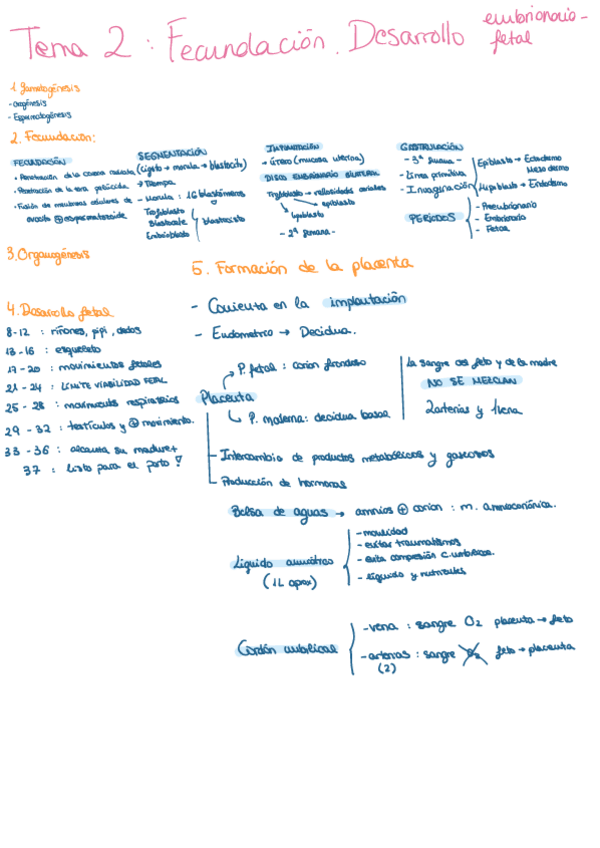 Tema 2 : Fecundación. Desarrollo embrionario-fetal
1. Gametogénesis
- Ovogénesis
- Espermatogénesis
2. Fecundación:
FECUNDACIÓN
• Penetración de la corona radiata
• Penetración de la zona pelúcida
• Fusión de membranas celulares de
ovocito ⊕ espermatozoide
SEGMENTACIÓN
(cigoto → morula → blastocito)
→ Trompa
- Morula : 16 blastómeros
Trofoblasto
Blastocele
Embrioblasto
blastocisto
IMPLANTACIÓN
→ útero (mucosa uterina)
DISCO EMBRIONARIO BILAMINAR
Trofoblasto → vellosidades coriales
epiblasto
hipoblasto
- 2ª semana -
GASTRULACIÓN
- 3ª semana -
- Línea primitiva
- Invaginación
Epiblasto → Ectodermo
Mesodermo
Hipoblasto → Endodermo
PERIODOS
- Preembrionario
- Embrionario
- Fetal
3. Organogénesis
4. Desarrollo fetal
8-12 : riñones, pipi, dedos
13-16 : esqueleto
17-20 : movimientos fetales
21-24 : LÍMITE VIABILIDAD FETAL
25-28 : movimientos respiratorios
29-32 : testículos y ⊕ movimiento.
33-36 : alcanza su madurez
37 : Listo para el parto !
5. Formación de la placenta
- Comienza en la implantación
- Endometrio → Decidua.
Placenta
P. fetal : corion frondoso
P. materna: decidua basal
La sangre del feto y de la madre
NO SE MEZCLAN
2 arterias y 1 vena
- Intercambio de productos metabólicos y gaseosos
- Producción de hormonas
Bolsa de aguas → amnios ⊕ corion : m. amniocoriónica.
Líquido amniótico
(1L aprox)
- movilidad
- evitar traumatismos
- evita compresión c. umbilical.
- líquido y nutrientes
Cordón umbilical
- vena : sangre O2 placenta → feto
- arterias : sangre O2 feto → placenta
(2)